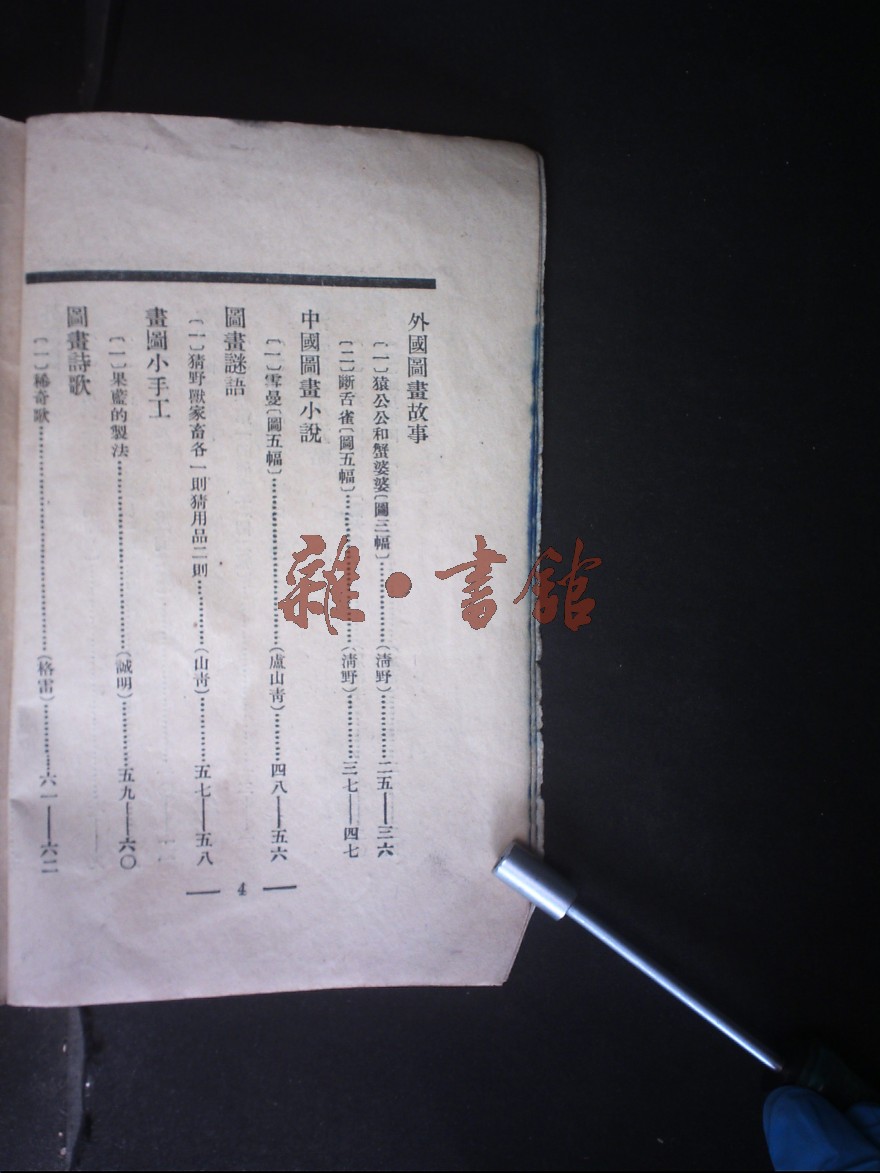 外國圖畫故事
〔一〕猿公公和蟹婆婆〔圖三幅〕…………(淸野)…………二五——三六
〔二〕斷舌雀〔圖五幅〕…………(淸野)…………三七——四七
中國圖畫小說
〔一〕雪曼〔圖五幅〕…………(盧山靑)…………四八——五六
圖畫謎語
〔一〕猜野獸家畜各一則猜用品二則…………(山靑)…………五七——五八
畫圖小手工
〔一〕果藍的製法…………(誠明)…………五九——六〇
圖畫詩歌
〔一〕稀奇歌…………(格雷)…………六一——六二
—— 4 ——
雜·書館